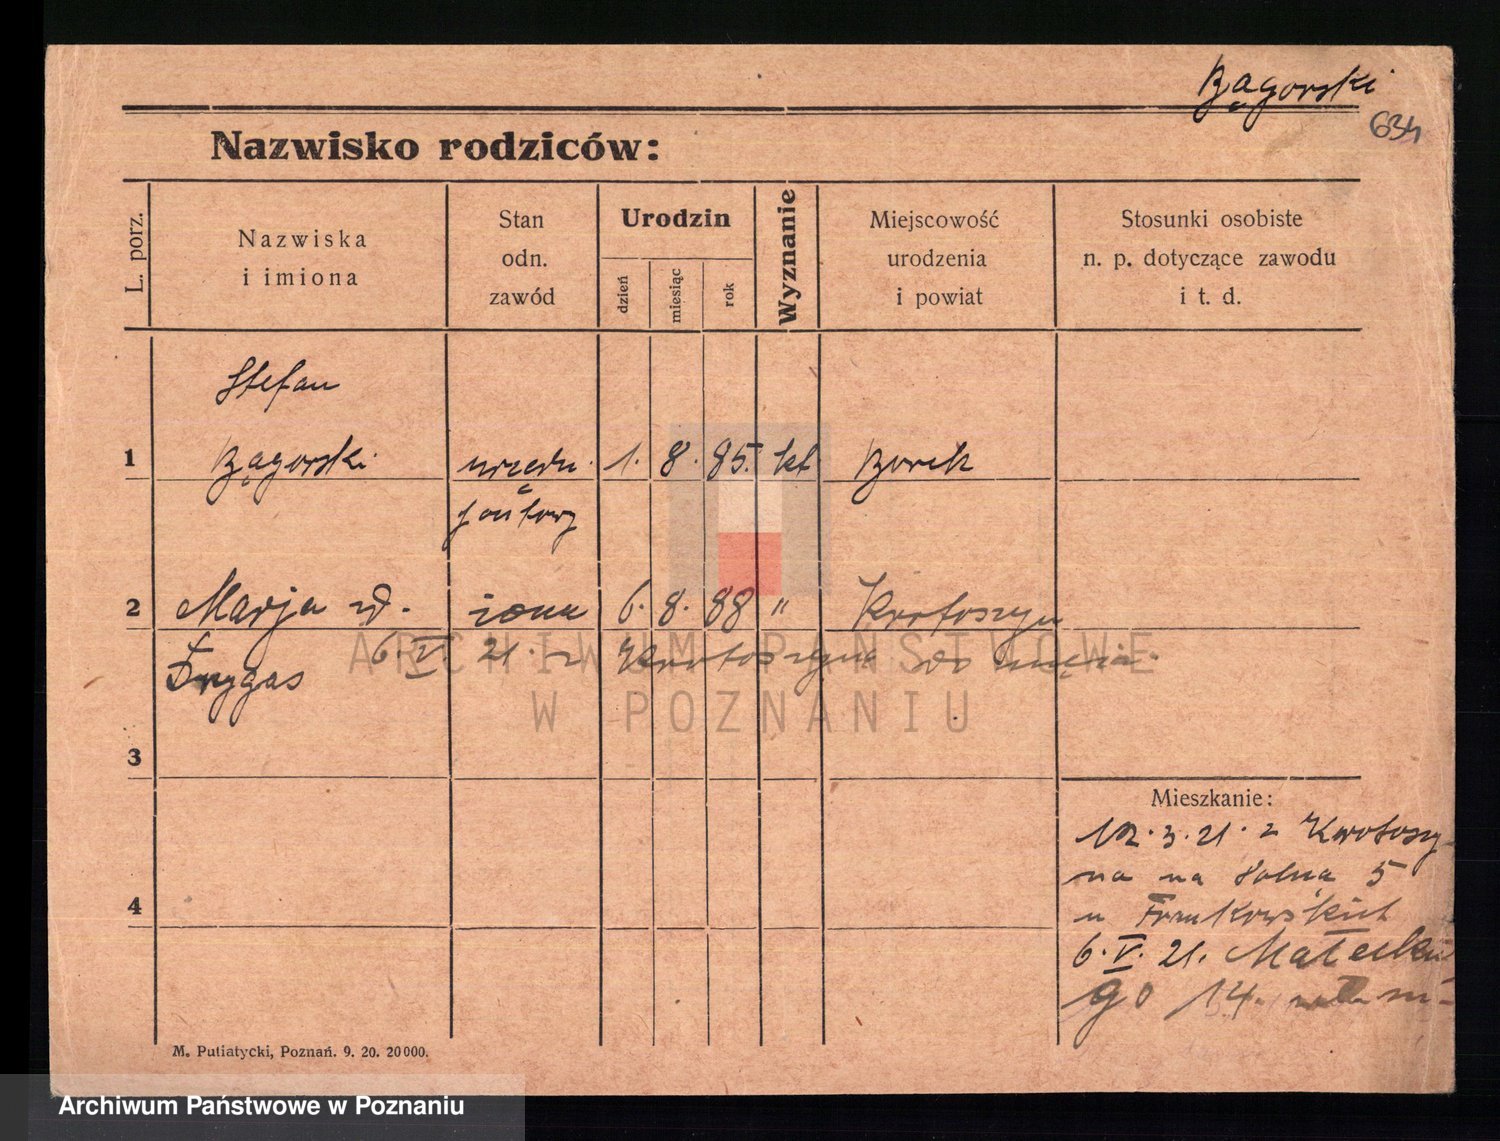 Bągorski
634
Nazwisko rodziców:
L. porz.
Nazwiska
i imiona
Stan
odn.
zawód
Urodzin
dzień
miesiąc
rok
Wyznanie
Miejscowość
urodzenia
i powiat
Stosunki osobiste
n. p. dotyczące zawodu
i t. d.
Stefan
1 Bągorski urzędn. 1. 8. 85. kt Borek
2 Marja ur. żona 6. 8. 88 " Krotoszyn
6. V 21. z Krotoszyna do męża.
Frygas
3
Mieszkanie:
12. 3. 21. z Krotoszy-
na na Solna 5
u Frankowskich
4
6. V. 21. Małeckie
go 14.
M. Putiatycki, Poznań. 9. 20. 20000.
ARCHIWUM PAŃSTWOWE
W POZNANIU
Archiwum Państwowe w Poznaniu